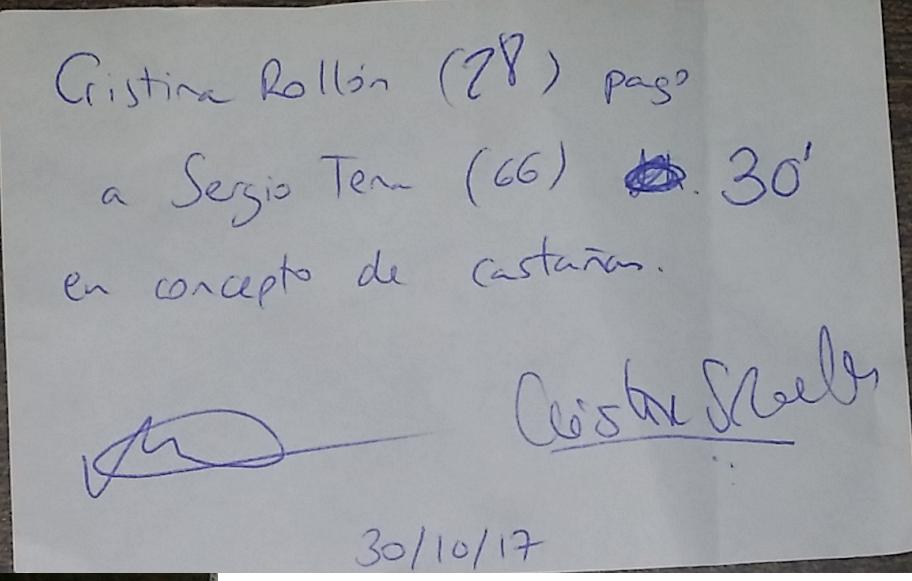 Cristina Rollón (28) pago
a Sergio (66) 30'
en concepto de castañas.
30/10/17